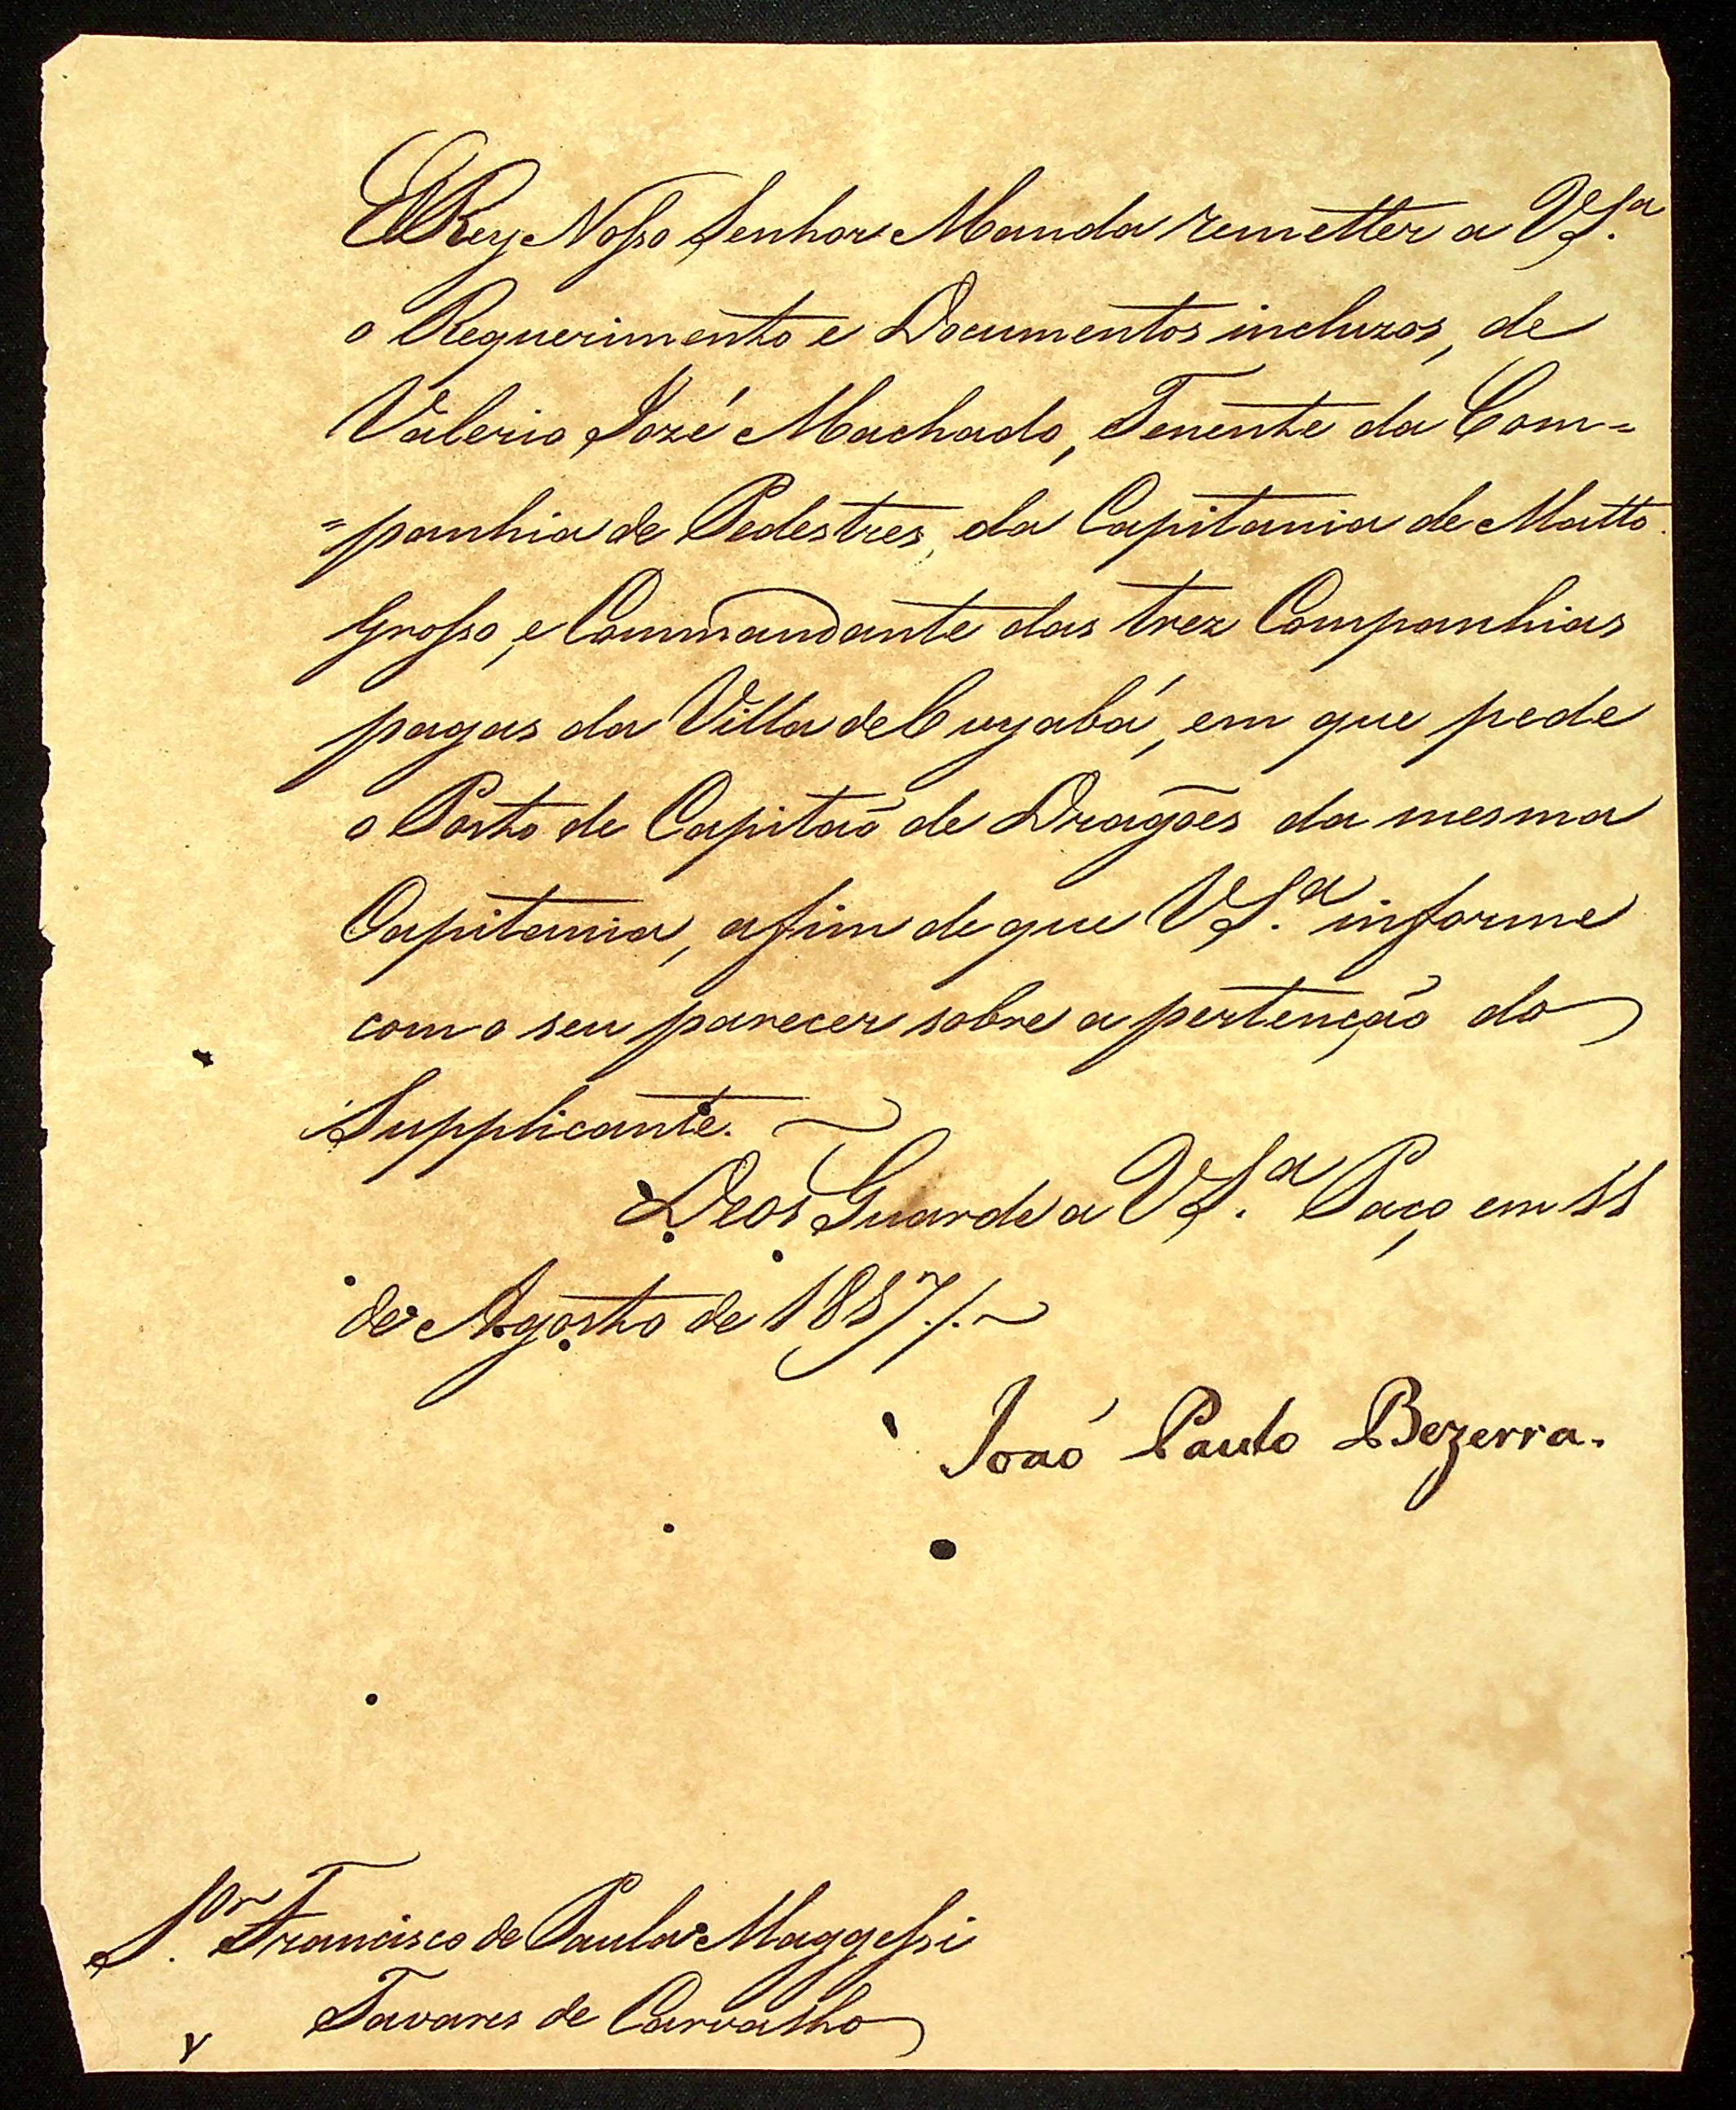 ElRey Nosso Senhor Manda remetter a VS.ª
o Requerimento e Documentos incluzos, de
Valerio Jozé Machado, Tenente da Com=
=panhia de Pedestres, da Capitania de Matto
Grosso, e Commandante das trez Companhias
pagas da Villa de Cuyabá, em que pede
o Posto de Capitaõ de Dragões da mesma
Capitania, afim de que VS.ª informe
com o seu parecer sobre a pertenção do
Supplicante.
Deos Guarde a VS.ª Paço em 11
de Agosto de 1817.
Joaõ Paulo Bezerra.
S.or Francisco de Paula Maggessi
Tavares de Carvalho